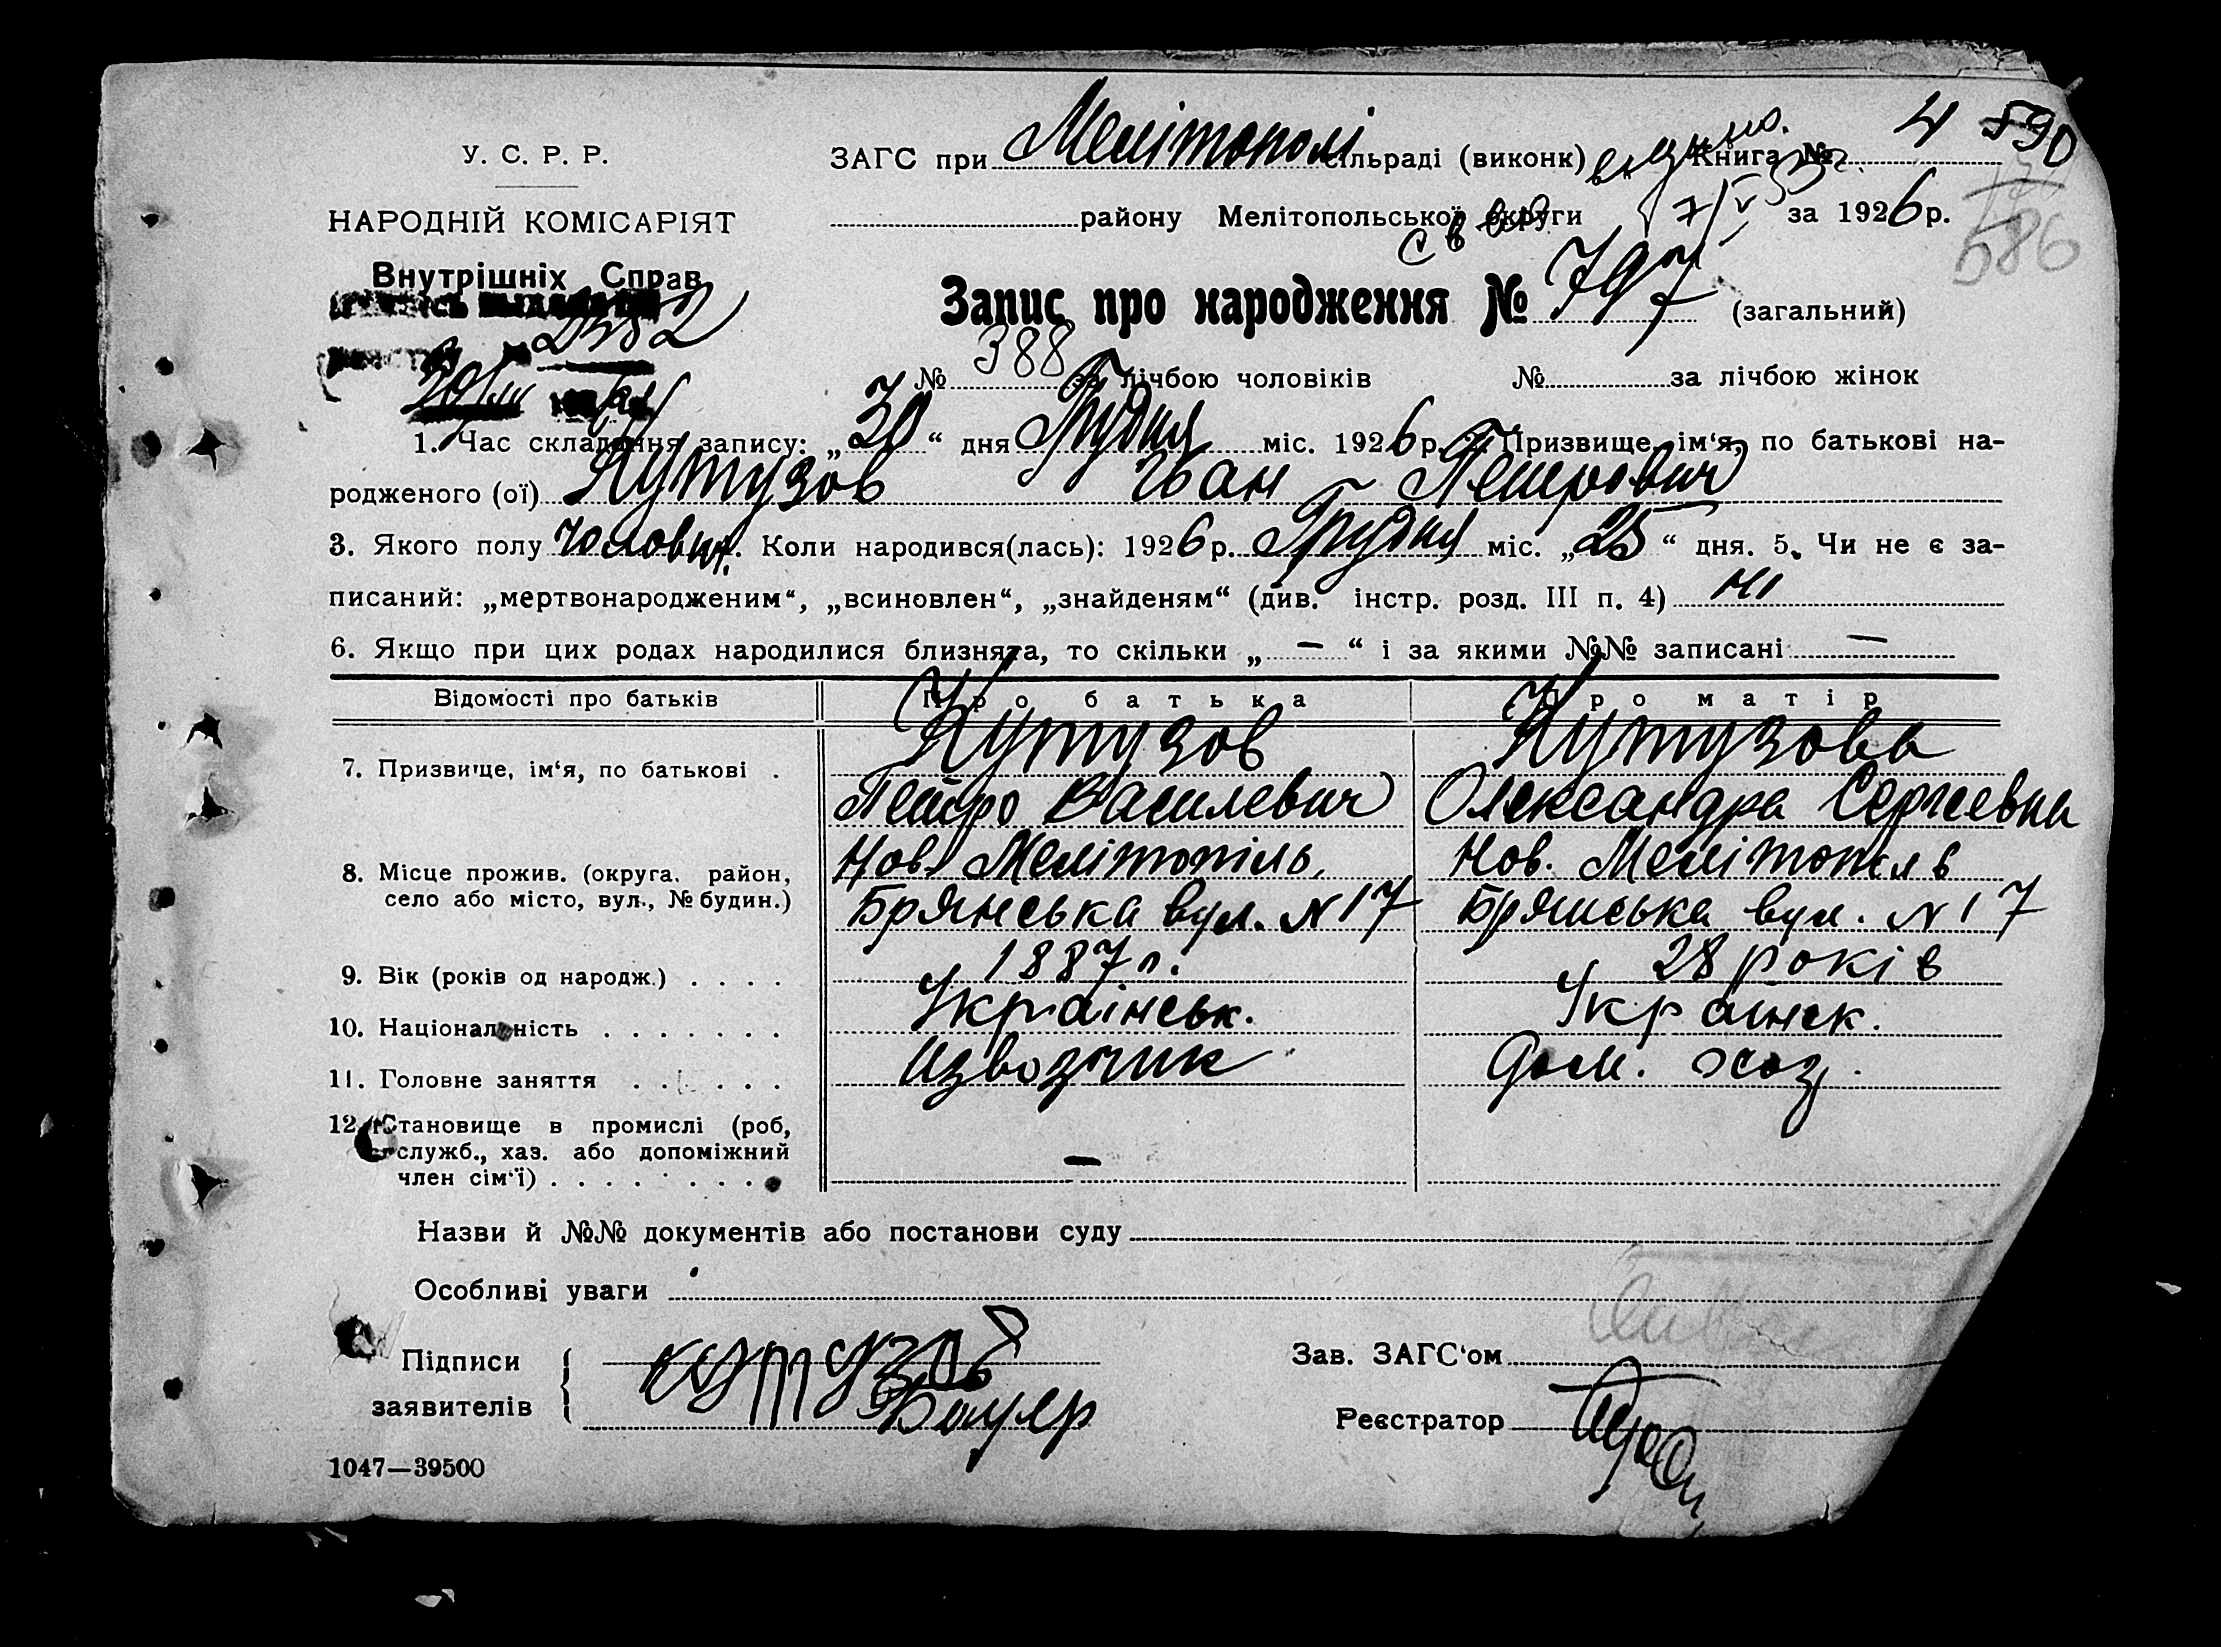 У. С. Р. Р.
НАРОДНІЙ КОМІСАРІЯТ
Внутрішніх Справ
2582
ЗАГС при Мелітополі сільраді (виконк) Книга № 4 590
району Мелітопольської округи за 1926 р.
586
Запис про народження № 797 (загальний)
№ 388 за лічбою чоловіків № за лічбою жінок
1. Час складання запису: „30“ дня Грудня міс. 1926 р. 2. Призвище, ім‘я, по батькові на-
родженого (ої) Кутузов Іван Петрович
3. Якого полу чолович. Коли народився(лась): 1926 р. Грудня міс. „25“ дня. 5. Чи не є за-
писаний: „мертвонародженим“, „всиновлен“, „знайденям“ (див. інстр. розд. III п. 4) ні
6. Якщо при цих родах народилися близнята, то скільки „ – “ і за якими №№ записані –
Відомості про батьків Про батька Про матір
7. Призвище, ім‘я, по батькові . Кутузов Кутузова
Петро Василевич Олександра Сергеевна
8. Місце прожив. (округа, район, Нов. Мелітопіль, Нов. Мелітопіль
село або місто, вул., № будин.) Брянська вул. N 17 Брянська вул. N 17
9. Вік (років од народж.) . . . . 1887 р. 28 років
10. Національність . . . . . . . Українськ. Українск.
11. Головне заняття . . . . . . Извозчик Дом. хоз.
12. Становище в промислі (роб,
служб., хаз. або допоміжний
член сім‘ї) . . . . . . . . –
Назви й №№ документів або постанови суду
Особливі уваги
Підписи Кутузов Зав. ЗАГС‘ом
заявителів Бауер Реєстратор
1047—39500